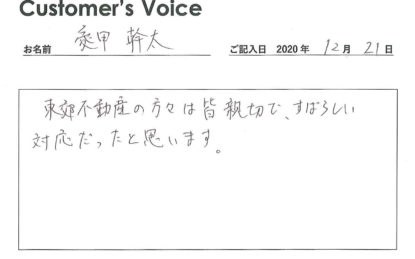 Customer's Voice
お名前 愛甲 幹太 ご記入日 2020 年 12 月 21 日
東郊不動産の方々は皆親切で、すばらしい
対応だったと思います。